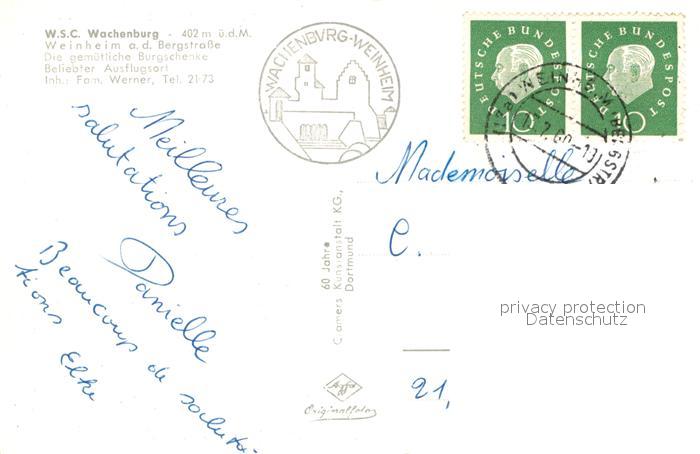 W.S.C. Wachenburg - 402 m ü.d.M.
Weinheim a.d. Bergstraße
Die gemütliche Burgschenke
Beliebter Ausflugsort
Inh.: Fam. Werner, Tel. 21-73
WACHENBURG-WEINHEIM
DEUTSCHE BUNDESPOST
10
DEUTSCHE BUNDESPOST
10
WEINHEIM (BERGSTR
Meilleures
salutations
Danielle
Beaucoup de saluta-
tions Elke
Mademoiselle
C.
21,
60 Jahre
Cramers Kunstanstalt KG.,
Dortmund
Agfa
Originalfoto
privacy protection
Datenschutz